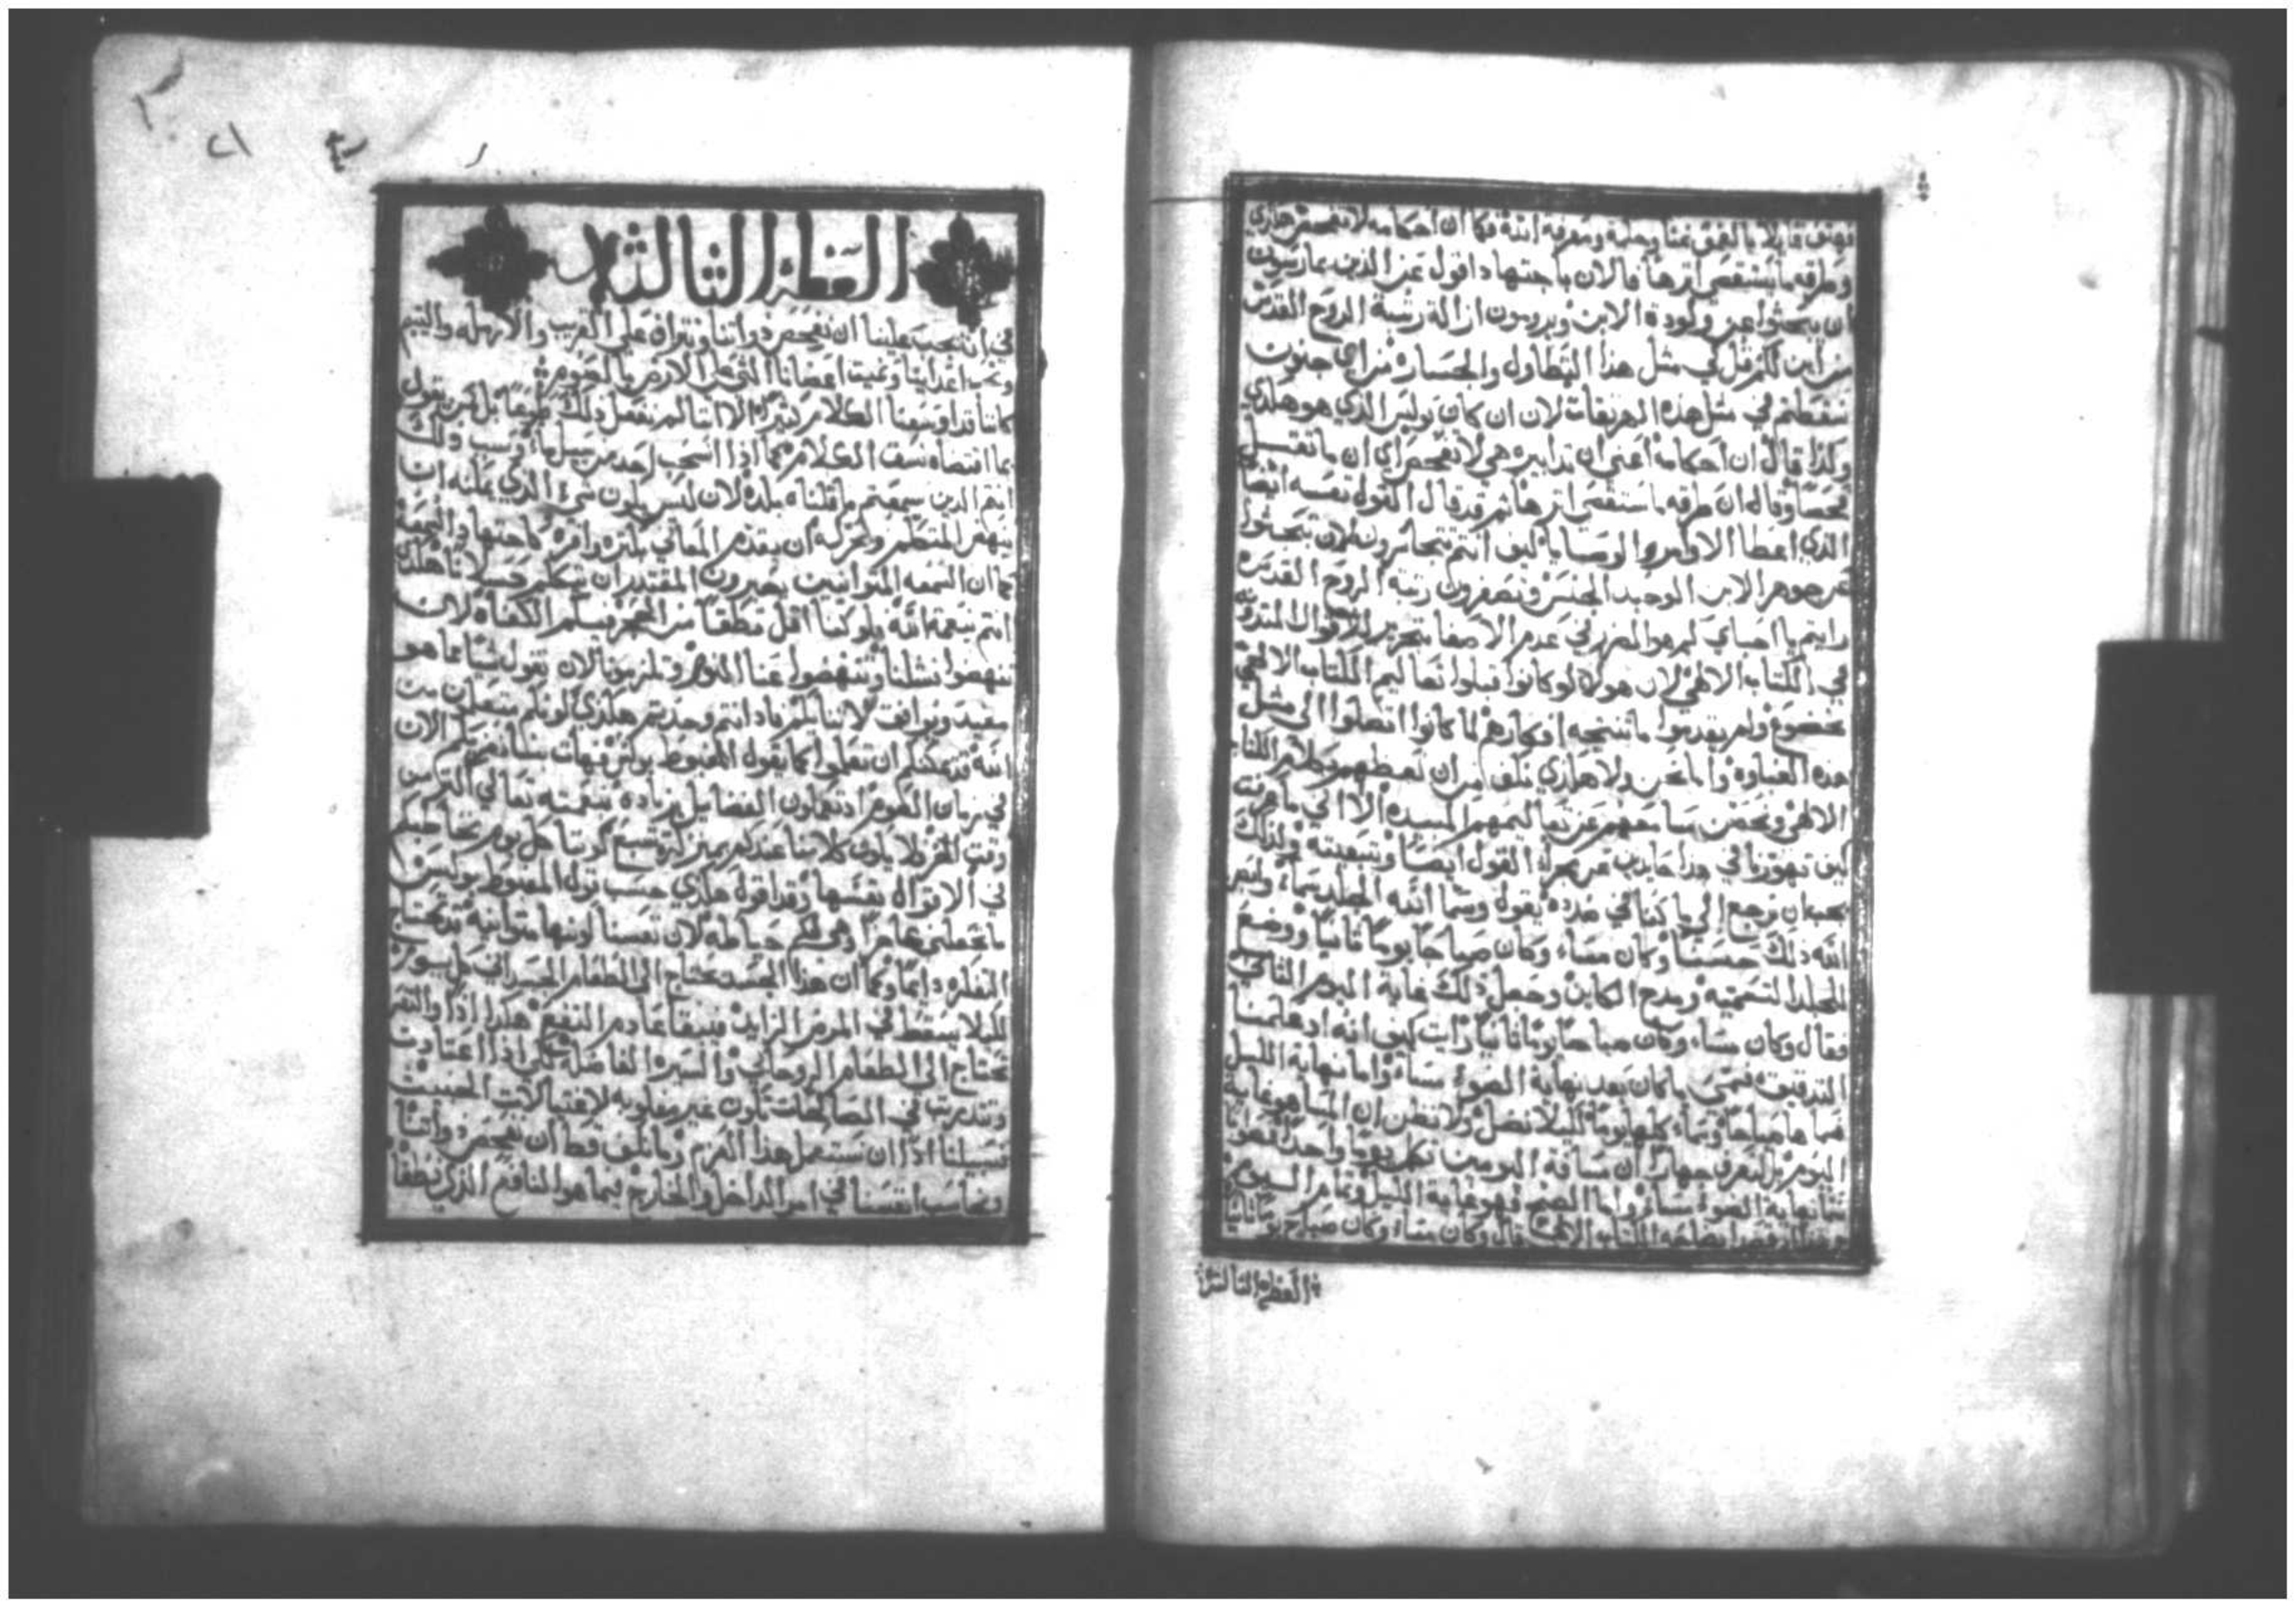 فهتف قايلا يا لعمق غنا وحكمة ومعرفة الله فكما ان احكامه لا تفحص هكذي
وطرقه ما يستقصى اثرها فالان باجتهاد اقول عن الذين يمارسون
ان يبحثوا عن ولودة الابن ويرومون ازالة رتبة الروح القدس
من اين لكم قل لي مثل هذا التطاول والجسارة من اي جنون
سقطتم في مثل هذه لان ان كان بولس الذي هو هكذي
وكذا قال ان احكامه اعني ان تدابيره هي لا تفحص اي ان ما تقتبل
فحصا وقال ان طرقه ما يستقصى اثرها ثم قد قال القول نفسه ايضا
الذي اعطا الاوامر والوصايا كيف انتم تتجاسرون لان تبحثوا
عن جوهر الابن الوحيد الجنس وتصغرون رتبة الروح القدس
رايتم يا احباي كم هو المضر في عدم الاصغا بتحرير للاقوال
في الكتاب الالهي لان هولاء لو كانوا قبلوا تعاليم الكتاب الالهي
بخضوع ولم يقدموا ما تنتجه افكارهم لما كانوا اتصلوا الى مثل
هذه الغباوة واما نحن ولا هكذي نكف من ان نعظهم بكلام الكتاب
الالهي ونحصن مسامعهم عن تعاليمهم المفسدة الا اني ما عرفت
كيف تهورنا في هذا حايدين عن مجراة القول ايضا وتبعيته ولذلك
يجب ان نرجع الى ما كنا في صدده يقول وسما الله الجلد سماء ونظر
الله ذلك حسنا وكان مساء وكان صباحا يوما ثانيا ووضع
للجلد التسمية ومدح الكاين وجعل ذلك نهاية اليوم الثاني
فقال وكان مساء وكان صباحا يوما ثانيا رايت كيف انه اذ علمنا
التدقيق فسمى ما كان بعد نهاية الضوء مساء واما نهاية الليل
فسماها صباحا وسماء كليهما يوما لكيلا نضل ولا نظن ان المسا هو نهاية
اليوم بل لنعرف جهارا ان مسافة اليومين تكمل يوما واحدا
نهاية الضوء مساء واما الصبح فهو نهاية الليل وتمام اليوم
الكتاب الالهي قال وكان مساء وكان صباح يوما ثانيا
العظة الثالثة
العظة الثالثة
في انه يجب علينا ان نفحص ذواتنا ونتراف على الغريب والارملة واليتيم
ونحب اعداينا ونميت اعضانا التي على الارض بالصوم
كاننا قد اوسعنا الكلام كثيرا الا اننا لم نفعل ذلك طوعا بل كمن يقول
بما اقتضاه نسق الكلام كما اذا انسحب احد من سيل ماء وسبب ذلك
انتم الذين سمعتم ما قلناه بلذة لان ليس يكون شيء الذي يمكنه ان
ينهض المتكلم ويحركه ان يقدم المعاني بكثرة وافرة كاجتهاد السمعة
كما ان السمعه المتوانيين يصيرون المقتدر ان يتكلم كسلانا هكذي
انتم بنعمة الله ولو كنا اقل نطقا من الحجر فبكم الكفاة لان
تنهضوا فشلنا وتنهضوا عنا النوم وتلزمونا لان نقول شيا مما هو
مفيد ويوافق لاننا بكم باد انتم وجدتم هكذي لونكم متعلمين من
الله قد يمكنكم ان تعملوا كما يقول المغبوط بولس فهات منكم الان
في زمان الصوم اذ تعملون الفضايل بزيادة بنعمته تعالى التي من
وقت لكي لا يكون كلامنا عندكم بمنزلة شبع كوننا كل يوم نخاطبكم
في الاقوال نفسها وقد اقول هكذي حسب قول المغبوط بولس
ما يجعلني عاجزا وهي لكم حياطه لان نفسنا كونها متوانية تحتاج
التفكره دايما وكما ان هذا الجسد يحتاج الى الطعام الجسداني كل يوم
لكيلا يسقط في المرض الزايد فيبقا عادم النفع هكذا اذا والنفس
تحتاج الى الطعام الروحاني والسيرة الفاضلة لكي اذا اعتادت
وتدربت في الصالحات تكون غير مغلوبة لاغتيالات الخبيث
فسبيلنا اذا ان نستعمل هذا العزم وما نكف قط ان نفحص ذواتنا
ونحاسب انفسنا في امر الداخل والخارج فيما هو النافع الذي نطقنا